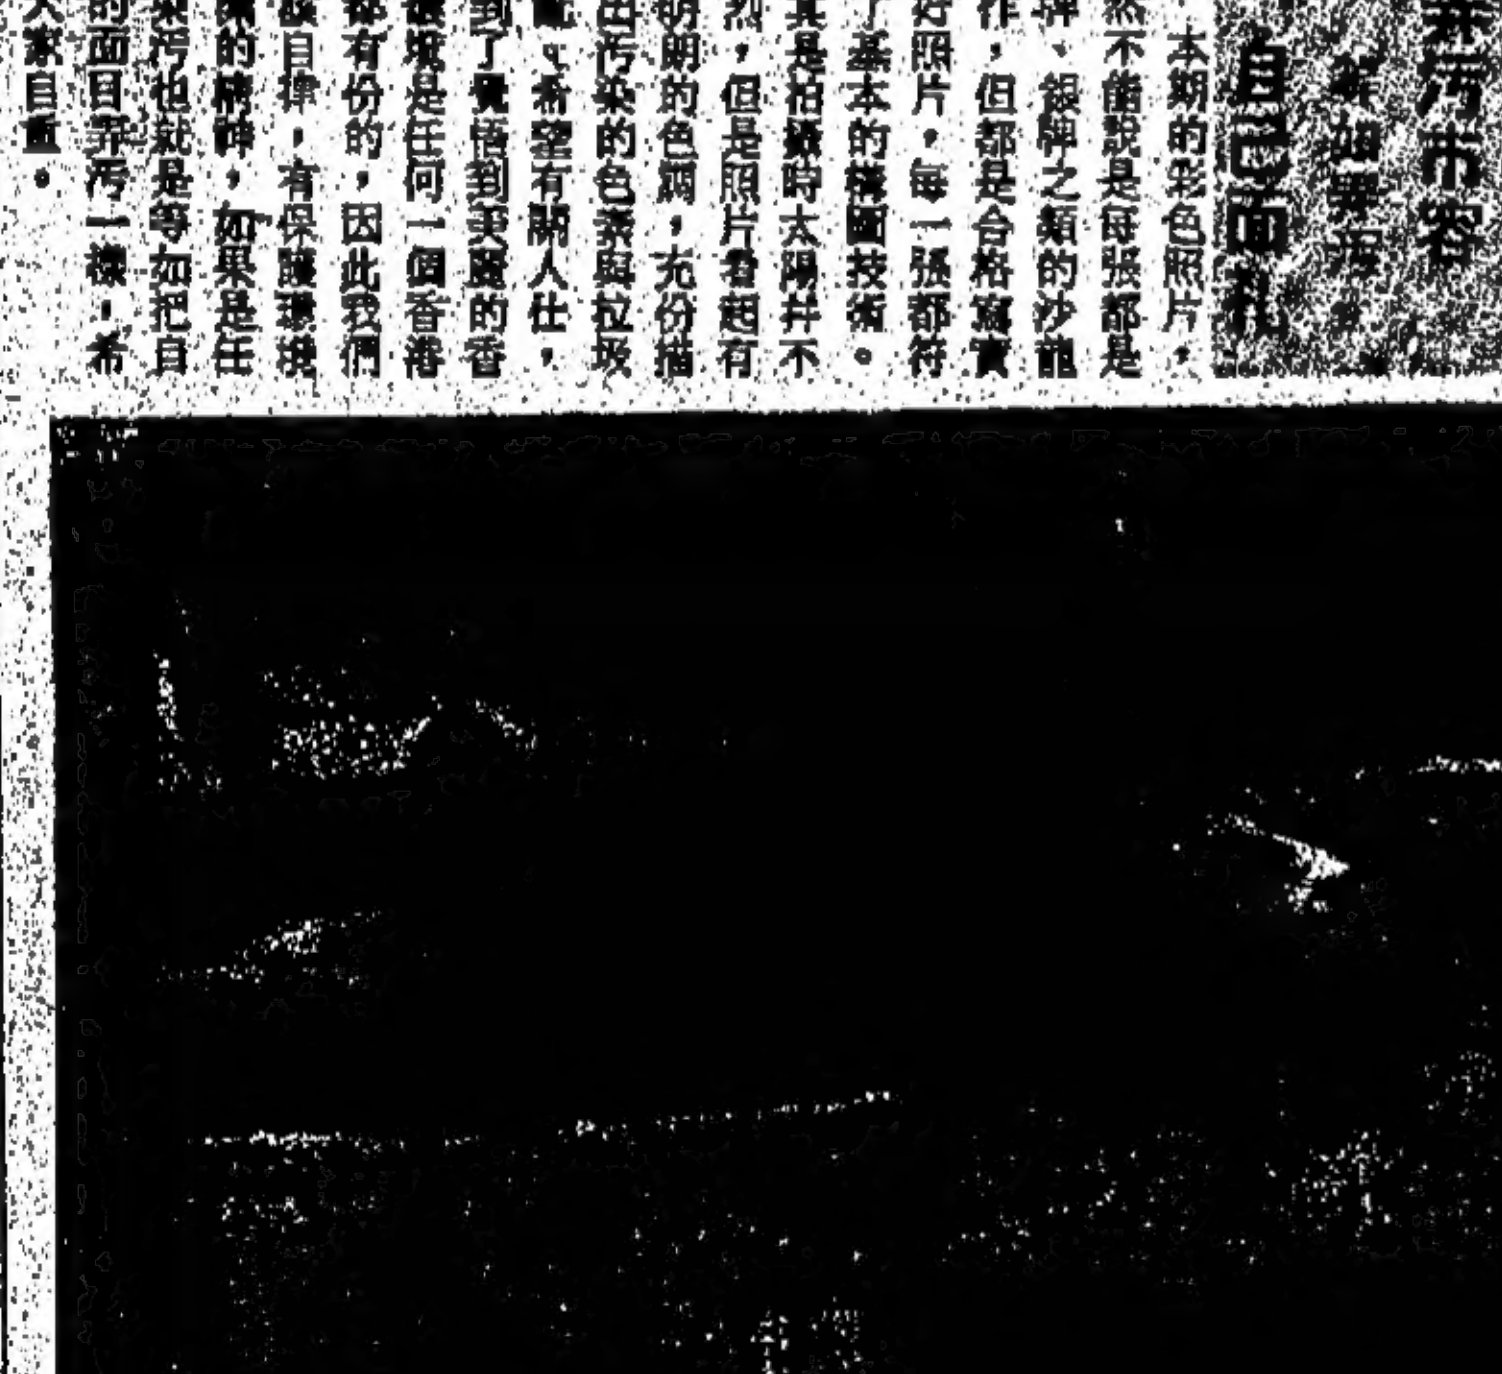 污市容
自己面
本期的彩色照片，
然不能說是每張都是
牌、銀牌之類的沙龍
作，但都是合格寫實
好照片，每一張都符
了基本的構圖技術。
其是拍攝時太陽並不
烈，但是照片看起有
明朗的色調，充份描
出污染的色素與垃圾
希望有關人仕，
到了覺悟到美麗的香
是任何一個香港
都有份的，因此我們
自律，有保護環境
的精神，如果是在
污也就是等如把自
的面目弄污一樣，希
大家自重。